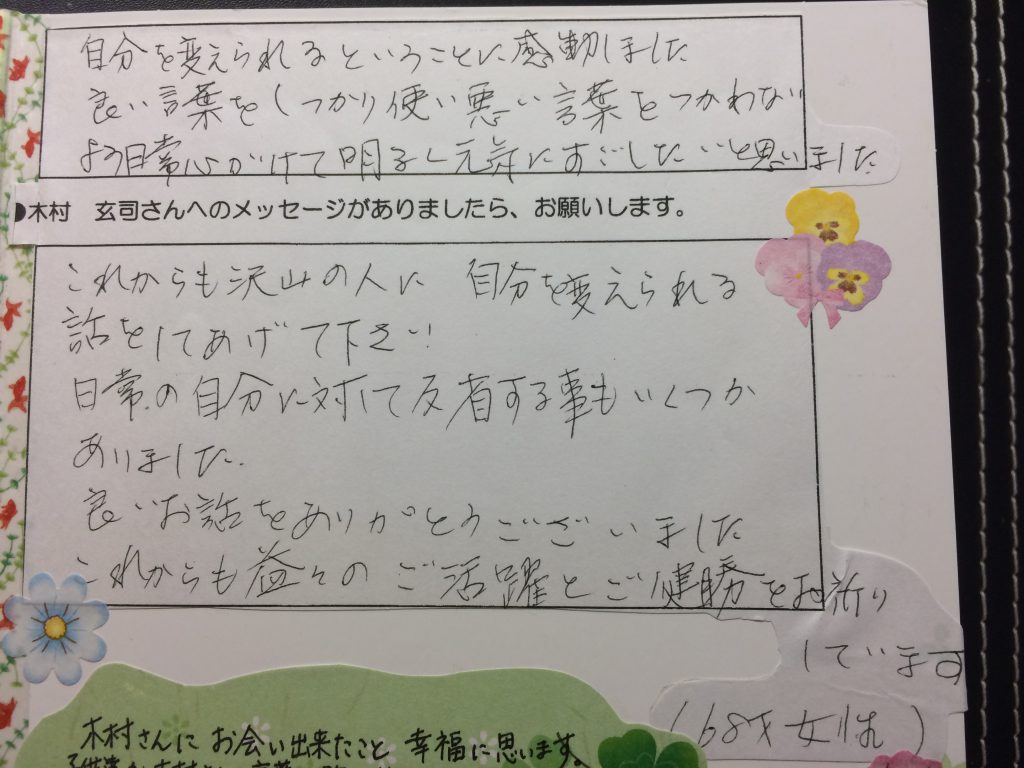 自分を変えられるということに感動しました
良い言葉をしっかり使い悪い言葉をつかわない
よう日常心がけて明るく元気にすごしたいと思いました
●木村　玄司さんへのメッセージがありましたら、お願いします。
これからも沢山の人に 自分を変えられる
話をしてあげて下さい
日常の自分に対して反省する事もいくつか
ありました.
良いお話をありがとうございました
これからも益々のご活躍とご健勝をお祈り
しています
(68才女性)
木村さんにお会い出来たこと 幸福に思います。